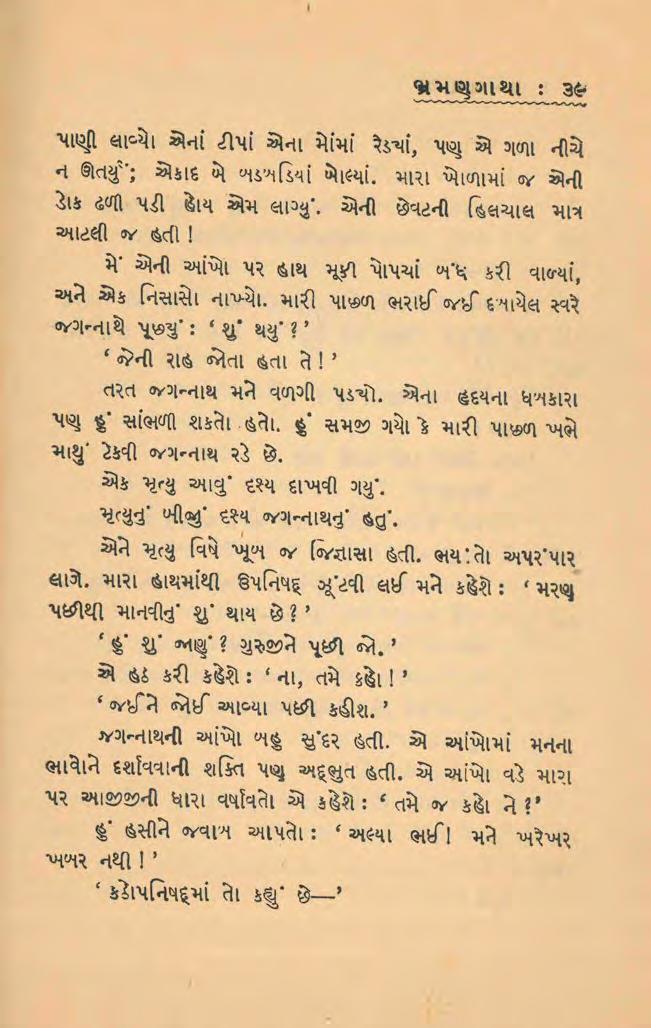 ભ્રમણગાથા : ૩૯
પાણી લાવ્યો એનાં ટીપાં એના મોંમાં રેડ્યાં, પણ એ ગળા નીચે
ન ઊતર્યું; એકાદ બે બડબડિયાં બોલ્યાં. મારા ખોળામાં જ એની
ડોક ઢળી પડી હોય એમ લાગ્યું. એની છેવટની હિલચાલ માત્ર
આટલી જ હતી !
મેં એની આંખો પર હાથ મૂકી પોપચાં બંધ કરી વાળ્યાં,
અને એક નિસાસો નાખ્યો. મારી પાછળ ભરાઈ જઈ દબાયેલ સ્વરે
જગન્નાથે પૂછયું : ‘ શું થયું ? ’
‘ જેની રાહ જોતા હતા તે ! ’
તરત જગન્નાથ મને વળગી પડયો. એના હૃદયના ધબકારા
પણ હું સાંભળી શકતો હતો. હું સમજી ગયો કે મારી પાછળ ખભે
માથું ટેકવી જગન્નાથ રડે છે.
એક મૃત્યુ આવું દૃશ્ય દાખવી ગયું.
મૃત્યુનું બીજું દૃશ્ય જગન્નાથનું હતું.
એને મૃત્યુ વિષે ખૂબ જ જિજ્ઞાસા હતી. ભય તો અપરંપાર
લાગે. મારા હાથમાંથી ઉપનિષદ્ ઝૂંટવી લઈ મને કહેશે : ‘ મરણ
પછીથી માનવીનું શું થાય છે ? ’
‘ હું શું જાણું ? ગુરુજીને પૂછી જો. ’
એ હઠ કરી કહેશે : ‘ ના, તમે કહો ! ’
‘ જઈને જોઈ આવ્યા પછી કહીશ. ’
જગન્નાથની આંખો બહુ સુંદર હતી. એ આંખોમાં મનના
ભાવોને દર્શાવવાની શક્તિ પણ અદ્ભુત હતી. એ આંખો વડે મારા
પર આજીજીની ધારા વર્ષાવતો એ કહેશે : ‘ તમે જ કહો ને ? ’
હું હસીને જવાબ આપતો : ‘ અલ્યા ભઈ ! મને ખરેખર
ખબર નથી ! ’
‘ કઠોપનિષદ્માં તો કહ્યું છે— ’